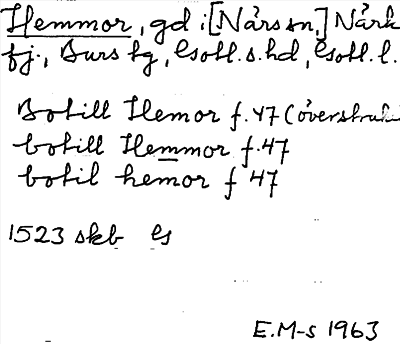 Hemmor, gd i [Närs sn,] Närk
fj., Burs tg, Gotl. s. hd, Gotl. l.
Botill Hemor f. 47 (överstruk
botill Hemmor f. 47
botil hemor f 47
1523 skb Gs
E.M-s 1963